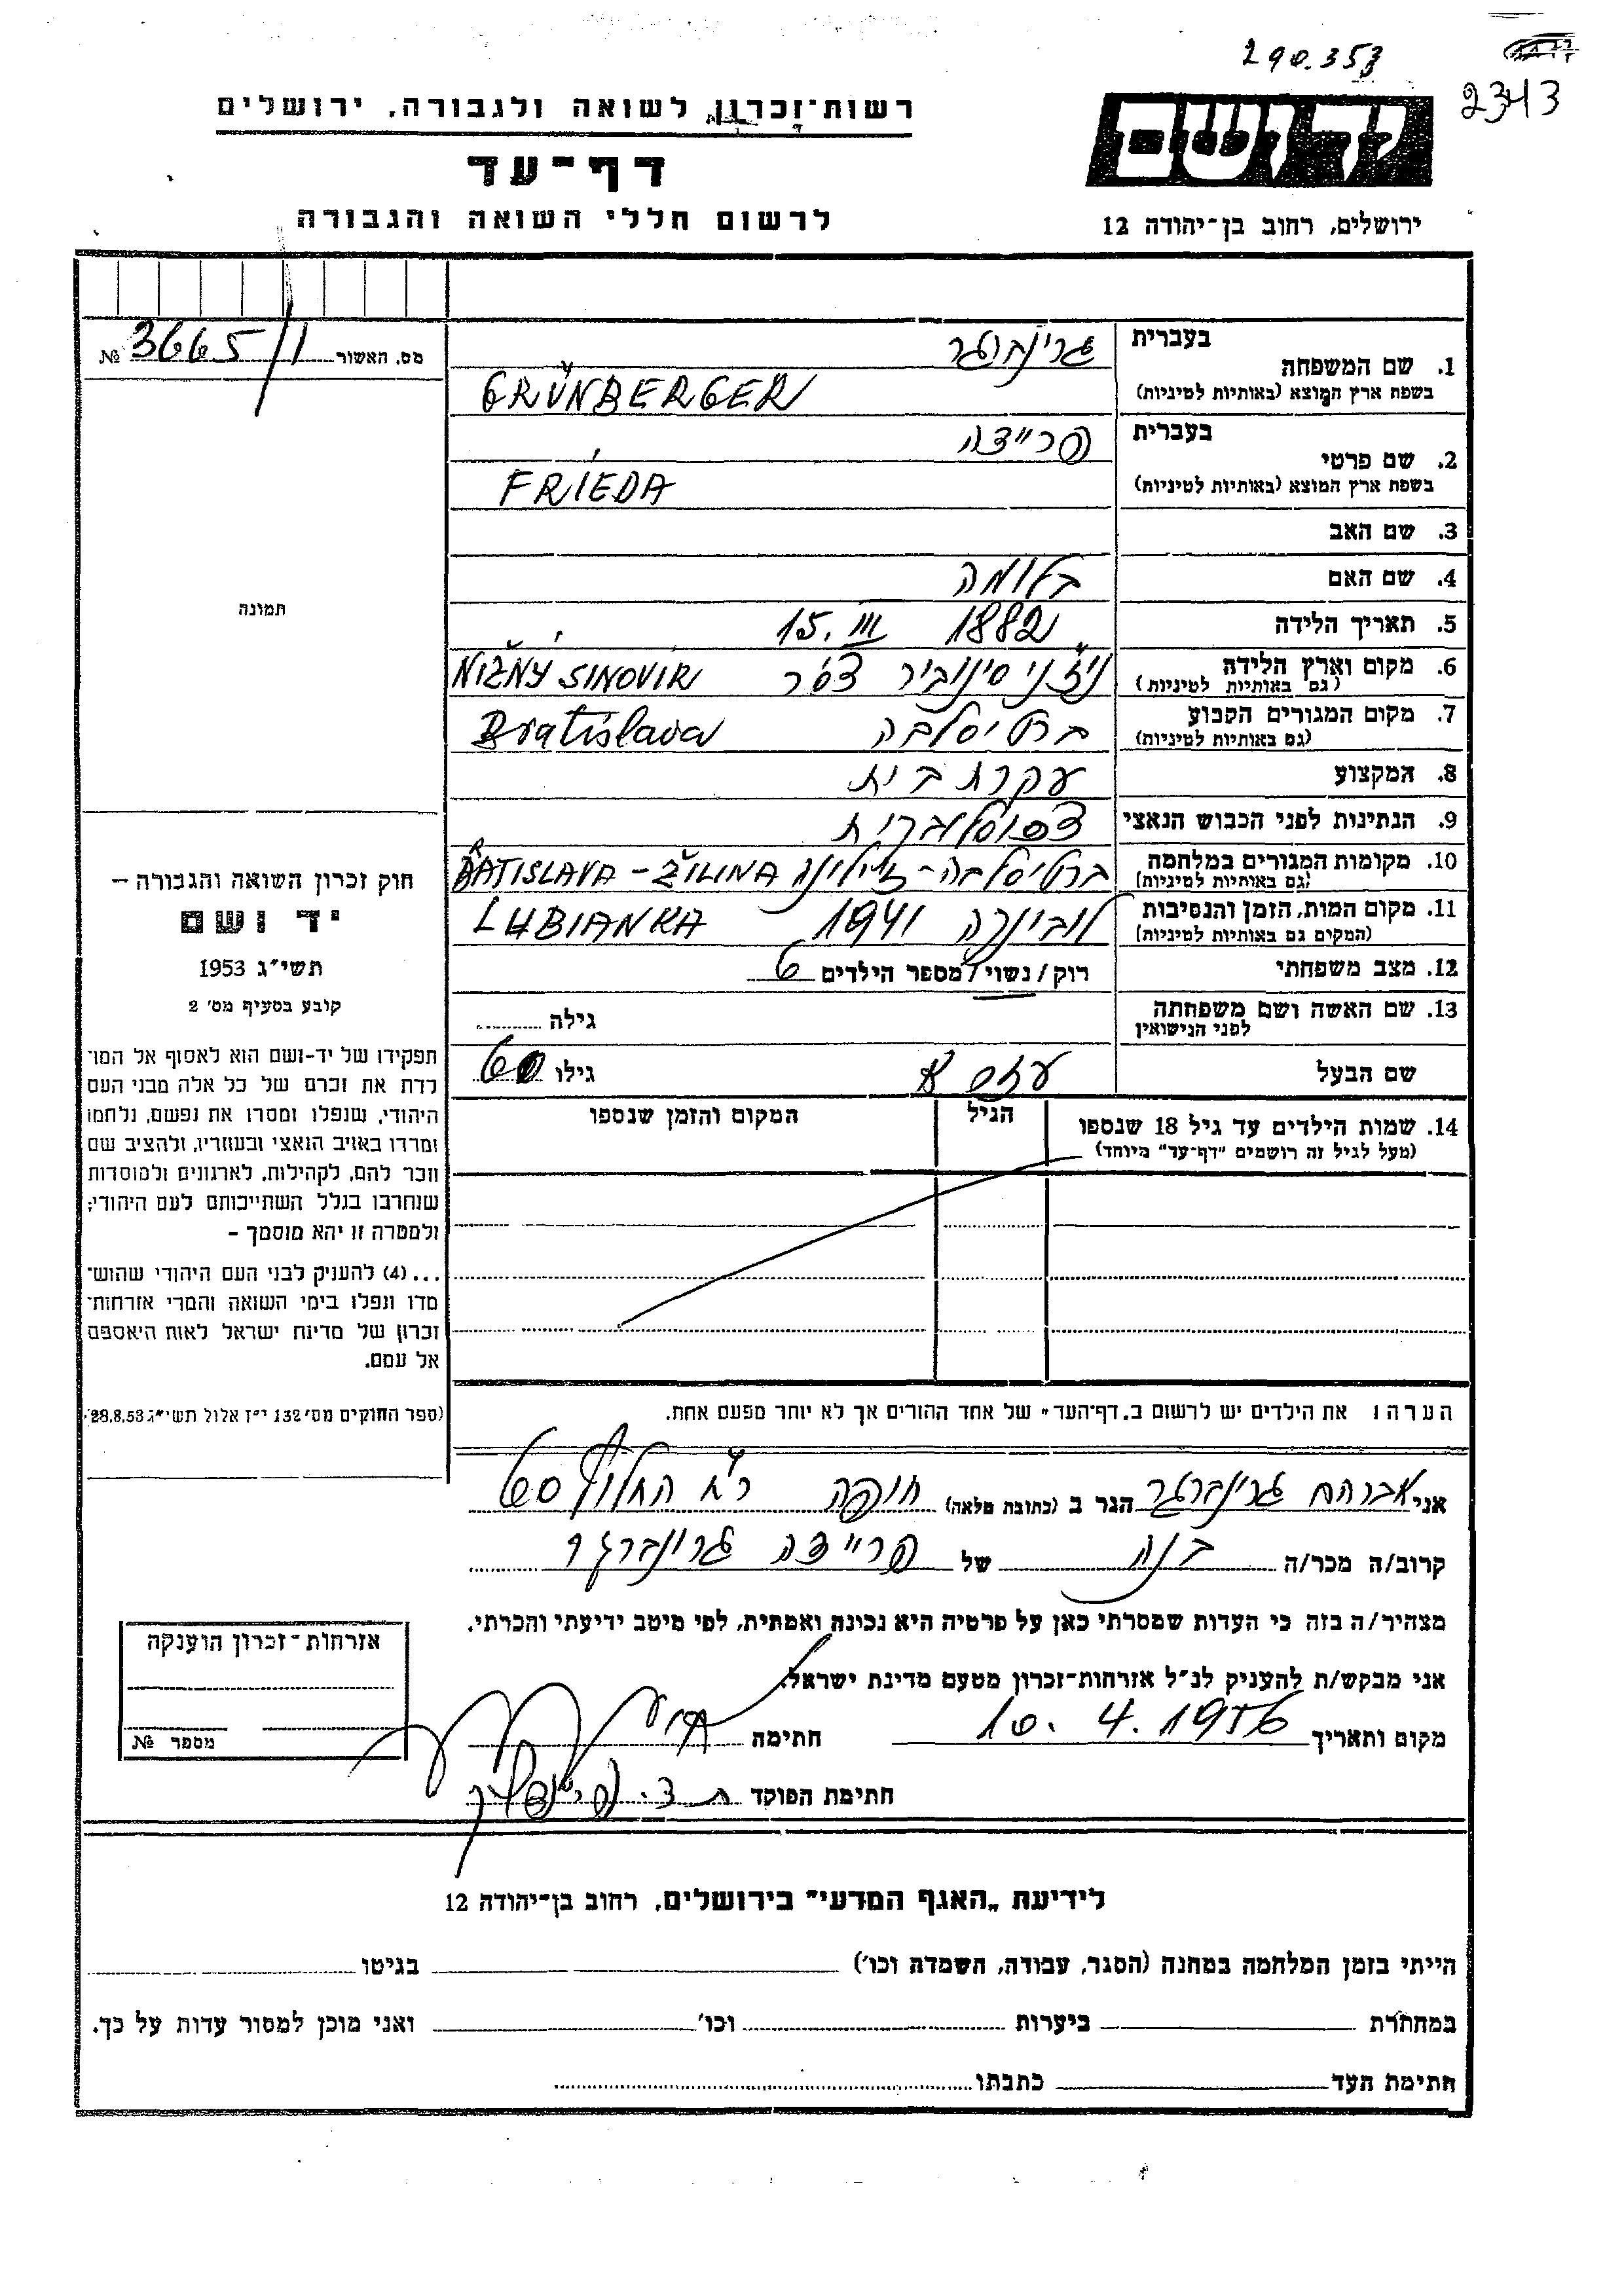 290.353
2343
יד ושם
רשות־זכרון לשואה ולגבורה, ירושלים
דף־עד
לרשום חללי השואה והגבורה
ירושלים, רחוב בן־יהודה 12
מס. האשור 3665/1 №
תמונה
חוק זכרון השואה והגבורה –
יד ושם
תשי״ג 1953
קובע בסעיף מס׳ 2
תפקידו של יד-ושם הוא לאסוף אל המו־
לדת את זכרם של כל אלה מבני העם
היהודי, שנפלו ומסרו את נפשם, נלחמו
ומרדו באויב הנאצי ובעוזריו, ולהציב שם
וזכר להם, לקהילות, לארגונים ולמוסדות
שנחרבו בגלל השתייכותם לעם היהודי;
ולמטרה זו יהא מוסמך –
...(4) להעניק לבני העם היהודי שהוש־
מדו ונפלו בימי השואה והמרי אזרחות־
זכרון של מדינת ישראל לאות היאספם
אל עמם.
(ספר החוקים מס׳ 132 י״ז אלול תשי״ג 28.8.53)
בעברית גרינברגר
1. שם המשפחה
בשפת ארץ המוצא (באותיות לטיניות) GRÜNBERGER
בעברית פריידה
2. שם פרטי
בשפת ארץ המוצא (באותיות לטיניות) FRIEDA
3. שם האב
4. שם האם בלומה
5. תאריך הלידה 15. III 1882
6. מקום וארץ הלידה ניז׳ני סינוביר צ׳ס׳ר NIŽNÝ SINOVIR
(גם באותיות לטיניות)
7. מקום המגורים הקבוע ברטיסלבה Bratislava
(גם באותיות לטיניות)
8. המקצוע עקרת בית
9. הנתינות לפני הכבוש הנאצי
10. מקומות המגורים במלחמה ברטיסלבה - ז׳ילינה BRATISLAVA - ŽILINA
(גם באותיות לטיניות)
11. מקום המות, הזמן והנסיבות לוביונקה 1941 LUBIANKA
(המקום גם באותיות לטיניות)
12. מצב משפחתי רוק/נשוי/מספר הילדים 6
13. שם האשה ושם משפחתה
לפני הנישואין גילה
שם הבעל גילו 60
14. שמות הילדים עד גיל 18 שנספו הגיל המקום והזמן שנספו
(מעל לגיל זה רושמים "דף־עד" מיוחד)
הערה: את הילדים יש לרשום ב„דף־העד״ של אחד ההורים אך לא יותר מפעם אחת.
אני אברהם גרינברגר הגר ב (כתובת מלאה) חיפה רח׳ החלוץ
קרוב/ה מכר/ה בנה של פריידה גרונברגר
מצהיר/ה בזה כי העדות שמסרתי כאן על פרטיה היא נכונה ואמתית, לפי מיטב ידיעתי והכרתי.
אני מבקש/ת להעניק לנ״ל אזרחות־זכרון מטעם מדינת ישראל.
מקום ותאריך 10. 4. 1956 חתימה
חתימת הפוקד
אזרחות־זכרון הוענקה
מספר №
לידיעת „האגף המדעי״ בירושלים, רחוב בן־יהודה 12
הייתי בזמן המלחמה במחנה (הסגר, עבודה, השמדה וכו׳) בגיטו
במחתרת ביערות וכו׳ ואני מוכן למסור עדות על כך.
חתימת העד כתבתו